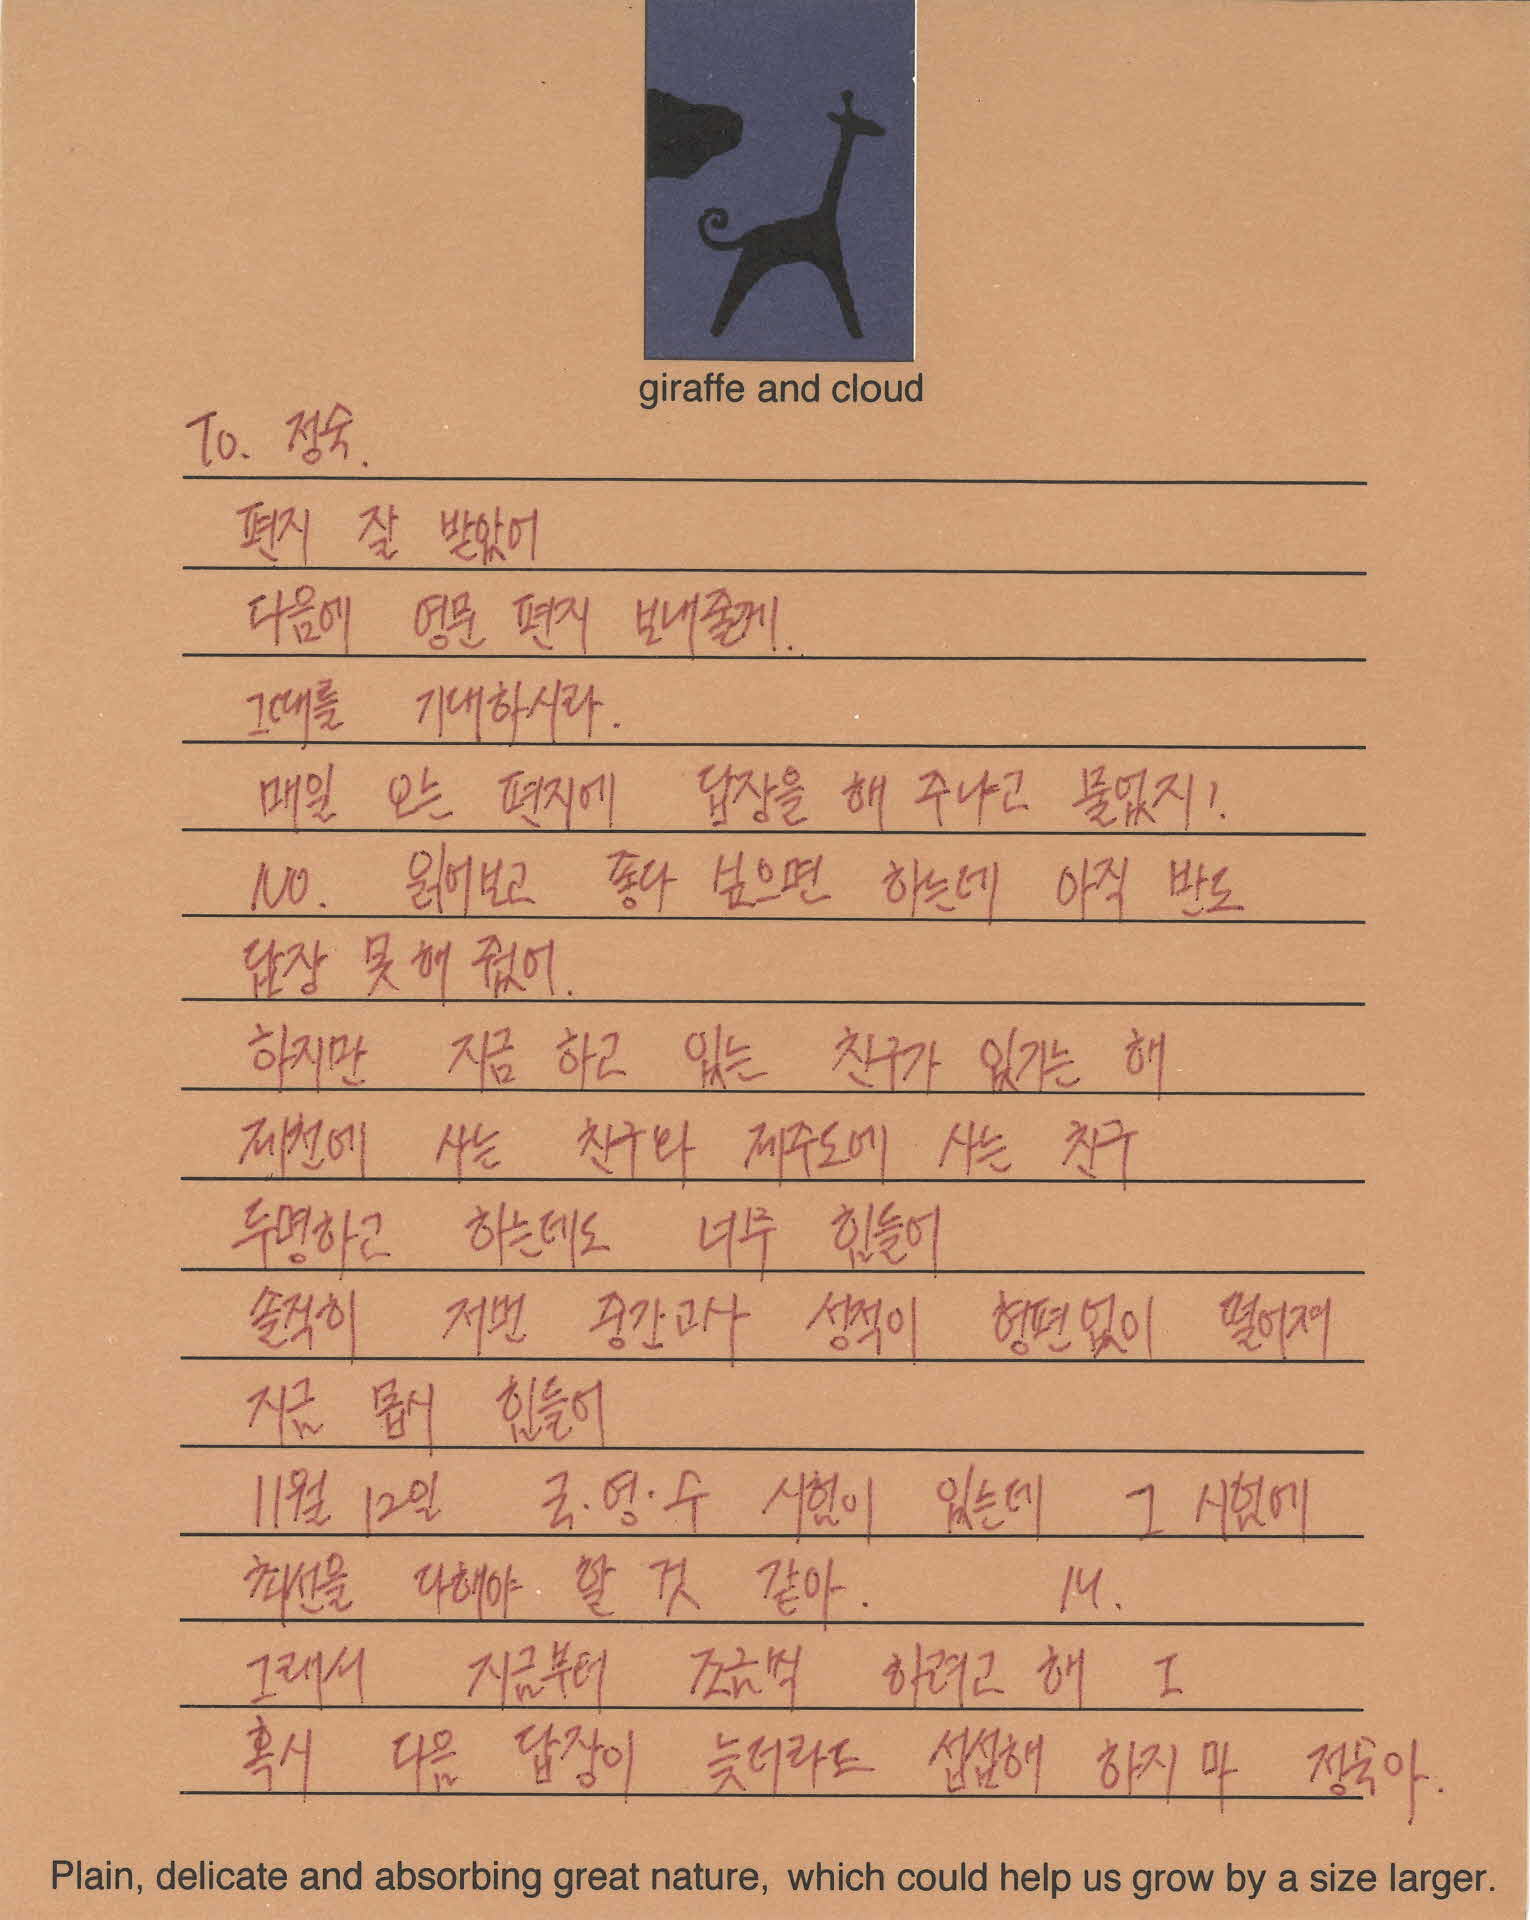 giraffe and cloud
To. 정숙.
편지 잘 받았어
다음에 영문 편지 보내줄께.
그때를 기대하시라.
매일 오는 편지에 답장을 해 주냐고 물었지!
NO. 읽어보고 좋다 싶으면 하는데 아직 반도
답장 못 해 줬어.
하지만 지금 하고 있는 친구가 있기는 해
제천에 사는 친구와 제주도에 사는 친구
두명하고 하는데도 너무 힘들어
솔직히 저번 중간고사 성적이 형편없이 떨어져
지금 몹시 힘들어
11월 12일 국·영·수 시험이 있는데 그 시험에
최선을 다해야 할 것 같아.
그래서 지금부터 조금씩 하려고 해
혹시 다음 답장이 늦더라도 섭섭해 하지 마 정숙아.
Plain, delicate and absorbing great nature, which could help us grow by a size larger.